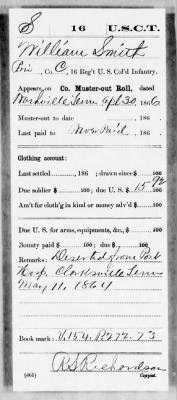 S 16 U.S.C.T.
William Smith
Pvt, Co. C, 16 Reg't U. S. Col'd Infantry.
Appears on Co. Muster-out Roll, dated
Nashville Tenn Apl 30, 1866
Muster-out to date , 186 .
Last paid to Never Paid , 186 .
Clothing account:
Last settled , 186 ; drawn since $ 100
Due soldier $ 100; due U. S. $ 15 92/100
Am't for cloth'g in kind or money adv'd $ 100
Due U. S. for arms, equipments, &c., $ 100
Bounty paid $ 100; due $ 100
Remarks: Deserted from Post
Hosp. Clarksville Tenn
May 11, 1864
Book mark: V.154. P. 272. 73
R S Richardson
(861) Copyist.